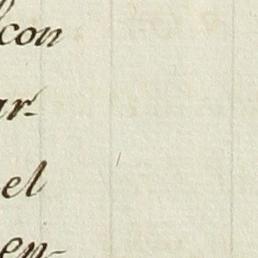 con
ar-
el
en-